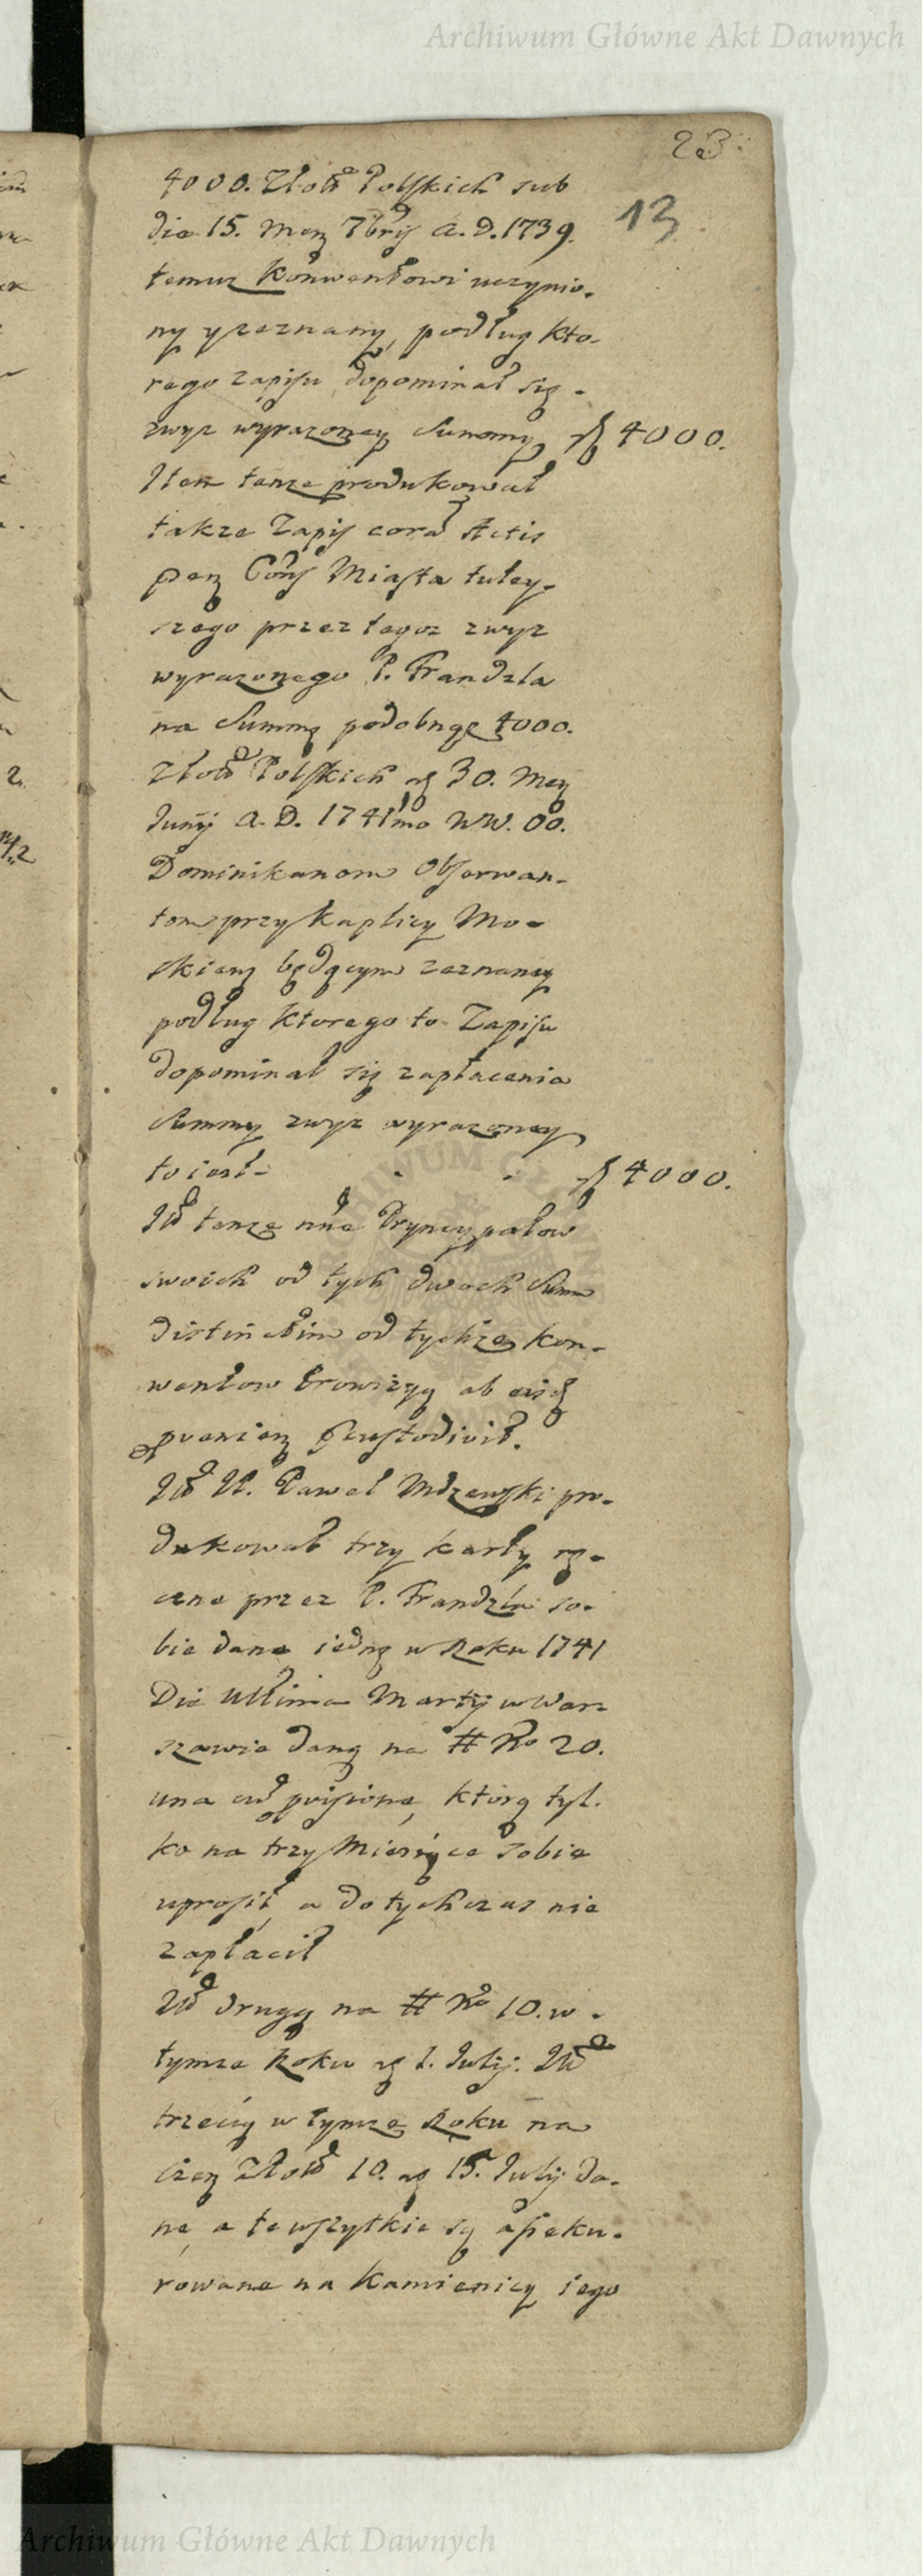 Archiwum Główne Akt Dawnych
23.
13
4000. Złot Polskich sub
die 15. Men 7bris A. D. 1739.
temuz Konwentowi uczynio-
ny y zeznany, podług kto-
rego zapisu dopominał się -
zwyz wyrazoney Summy f 4000.
Item tenze produkował
takze Zapis coram Actis
Miasta tutey-
szego przez tegoz zwyz
wyrazonego P. Frandzla
na Summę podobnąz 4000.
Złott Polskich 30. Men
Junij A. D. 1741mo WW. OO.
Dominikanom Obserwan-
tom przy Kaplicy Mo-
skiem będącym zeznany
podług ktorego to Zapisu
dopominał się zapłacenia
Summy zwyz wyrazoney
to iest - - - f 4000.
Itt tenze nne Pryncypałow
swoich od tych dwoch Summ
distinctim od tychze kon-
wentow Prowizyą ab
praecustodivit.
Itt P. Paweł Mdzewski pro-
dukował trzy karty rę-
czne przez P. Frandzla so-
bie dane iedną w Roku 1741
Die Ultima Martij w War-
szawie daną na # No 20.
una cum ktorą tyl-
ko na trzy Miesiące sobie
uprosił, a dotychczas nie
zapłacił
Itt drugą na # No 10. w -
tymze Roku 1. Julij. Itt
trzecią w tymze Roku na
Czer Złott 10. 15. Julij da-
ne, a te wszytkie są assekū-
rowane na Kamienicy iego
Archiwum Główne Akt Dawnych